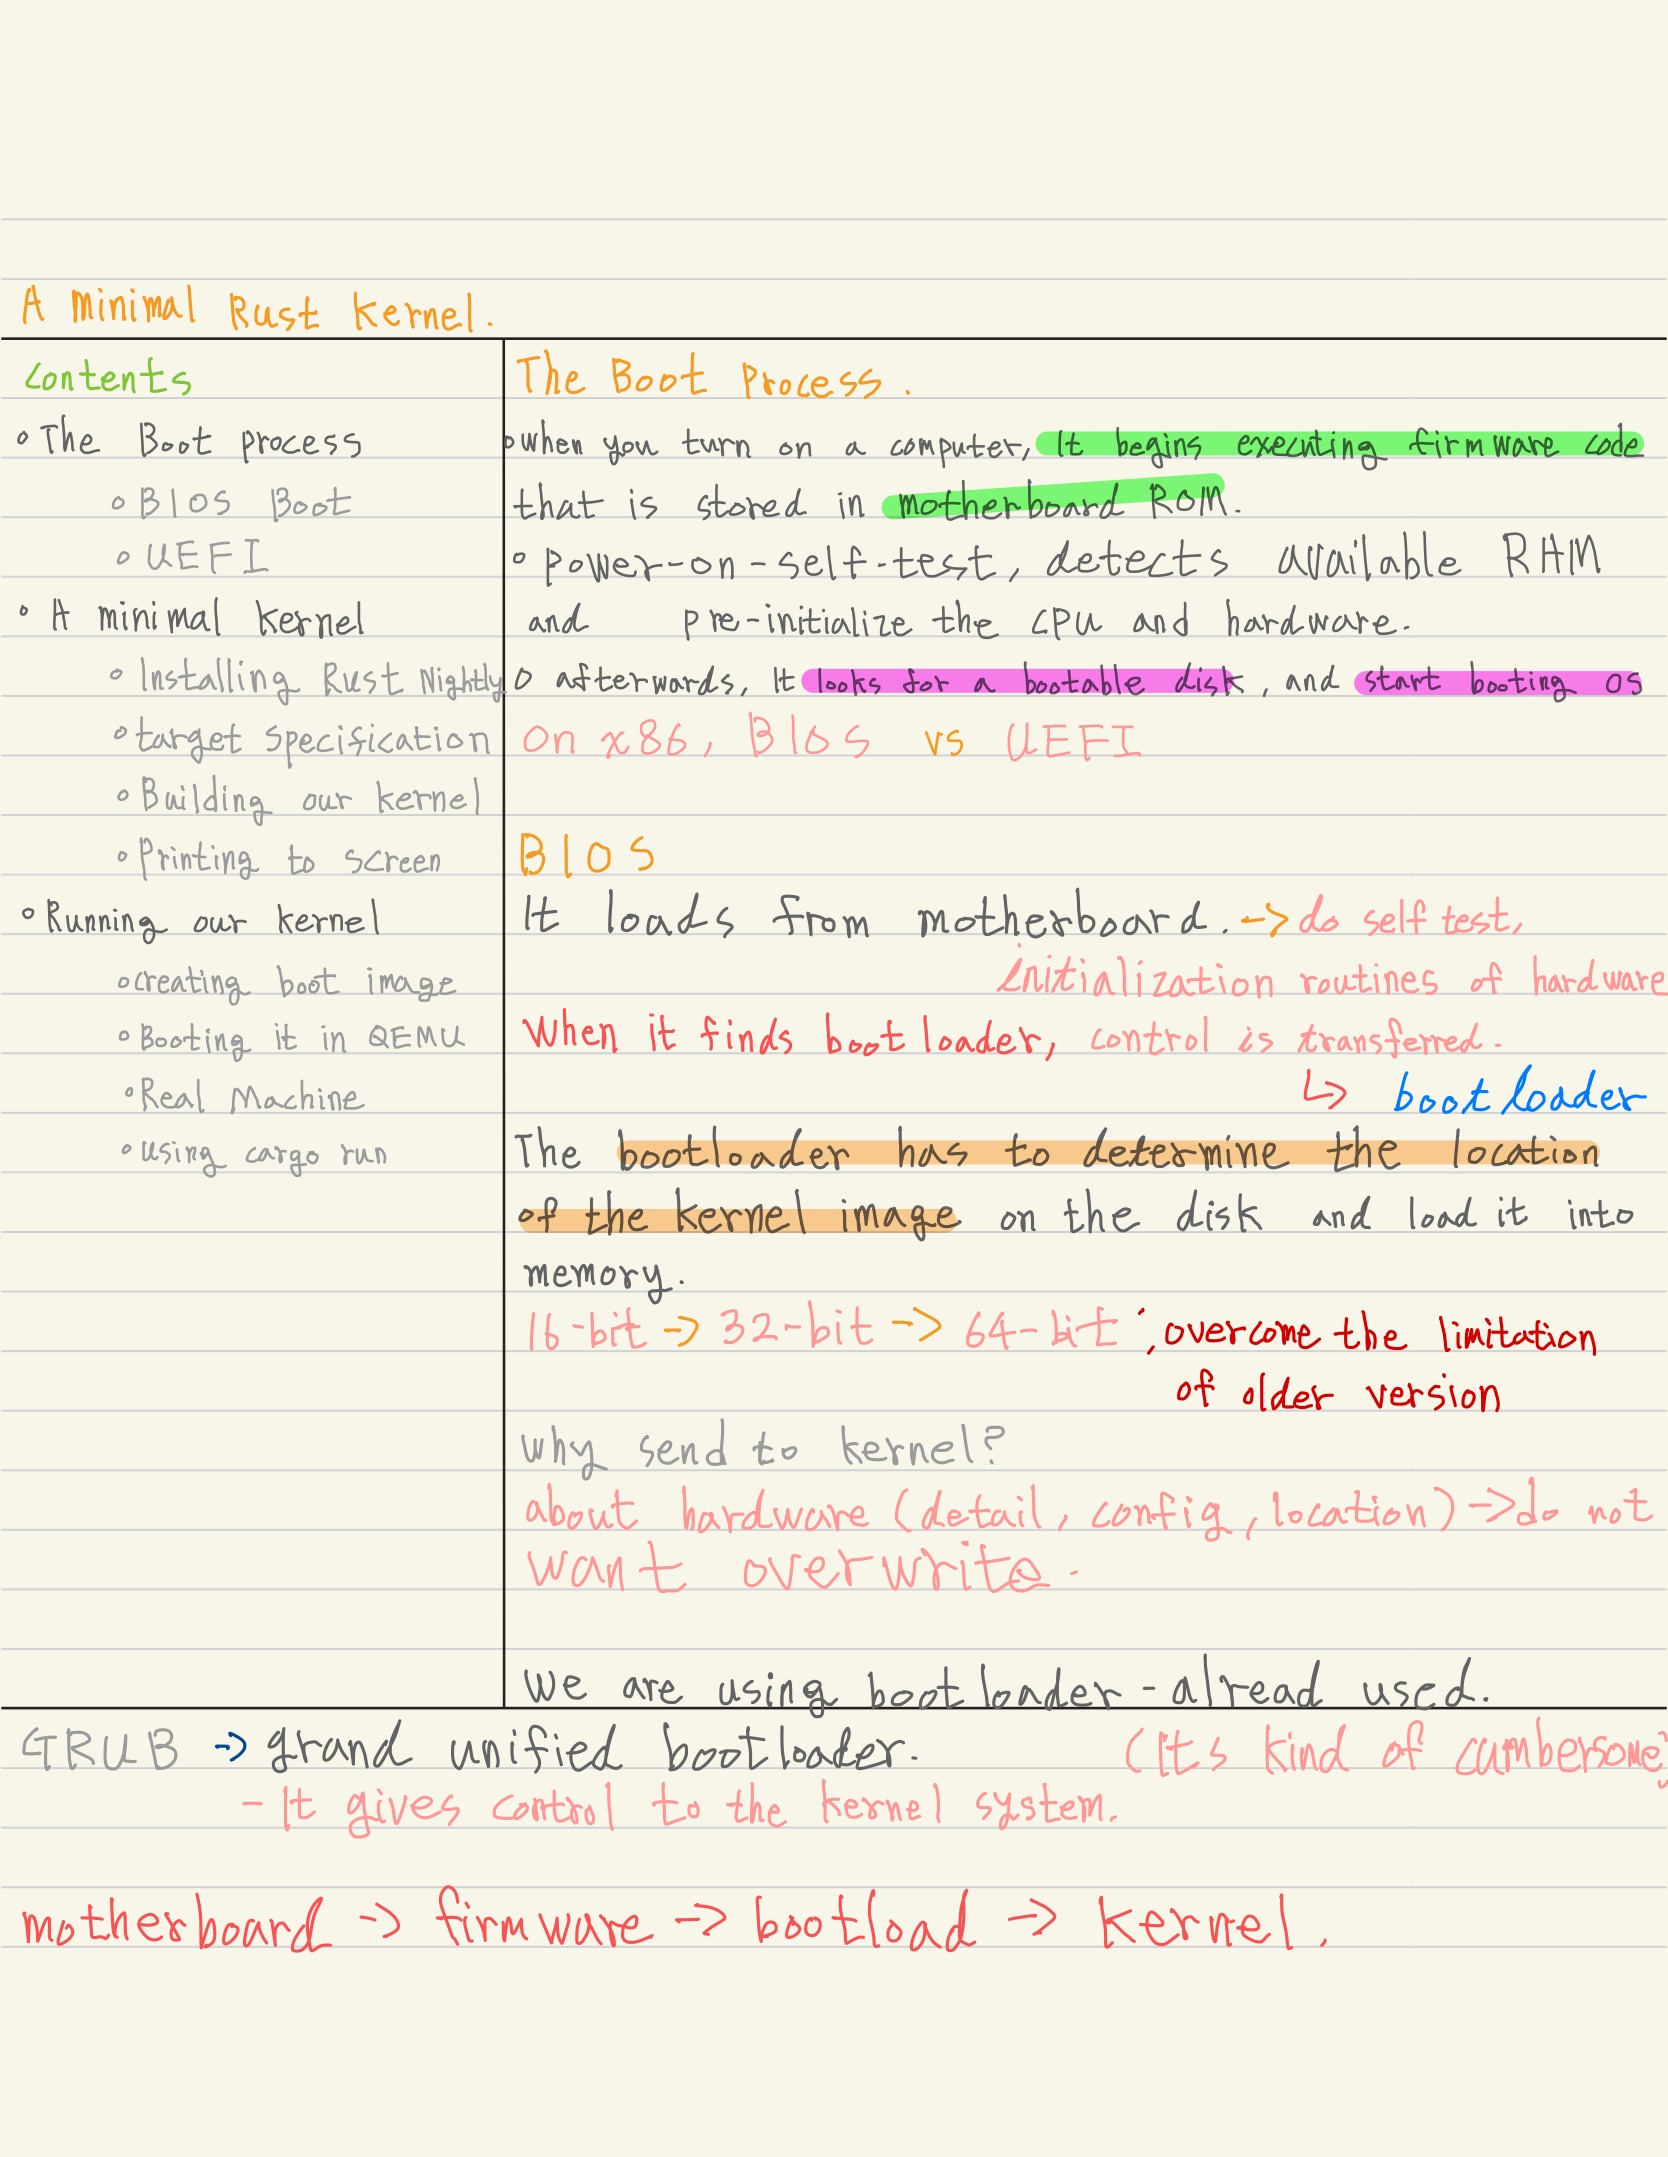 A minimal Rust Kernel.
Contents
• The Boot process
• BIOS Boot
• UEFI
• A minimal kernel
• Installing Rust Nightly
• target specification
• Building our kernel
• Printing to screen
• Running our kernel
• creating boot image
• Booting it in QEMU
• Real Machine
• using cargo run
The Boot Process.
• when you turn on a computer, It begins executing firmware code
that is stored in motherboard ROM.
• power-on-self-test, detects available RAM
and pre-initialize the CPU and hardware.
• afterwards, It looks for a bootable disk, and start booting OS
On x86, BIOS vs UEFI
BIOS
It loads from motherboard. -> do self test,
initialization routines of hardware
When it finds bootloader, control is transferred.
↳ bootloader
The bootloader has to determine the location
of the kernel image on the disk and load it into
memory.
16-bit -> 32-bit -> 64-bit ; overcome the limitation
of older version
why send to kernel?
about hardware (detail, config, location) -> do not
want overwrite.
We are using bootloader-alread used.
GRUB -> grand unified bootloader. (Its kind of cumbersome)
- It gives control to the kernel system.
motherboard -> firmware -> bootload -> kernel.